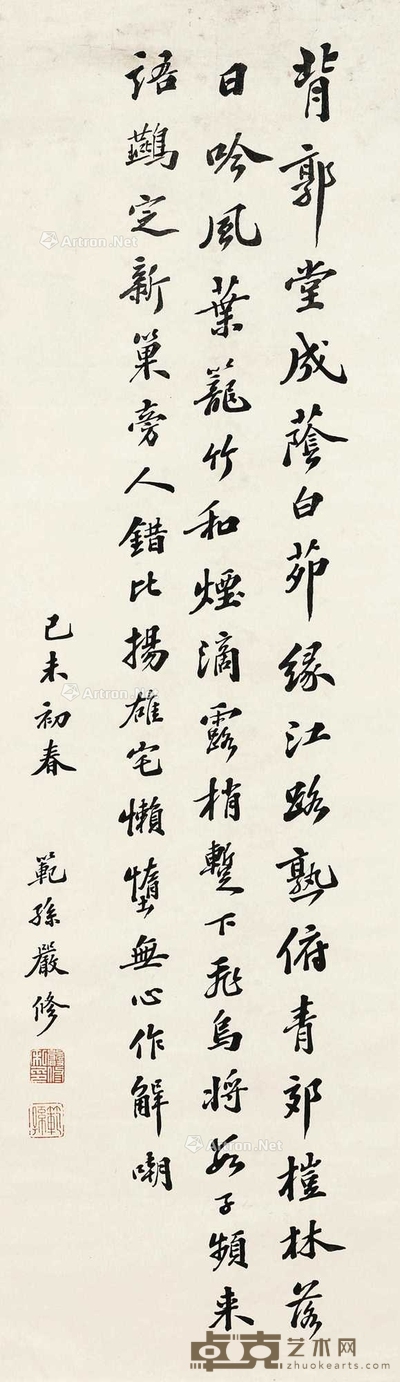 背郭堂成蔭白茆緣江路熟俯青郊榿林落
日吟風葉籠竹和煙滴露梢暫下飛烏將數子頻來
語鷰定新巢旁人錯比揚雄宅懶墮無心作解嘲
己未初春 範孫嚴修
Artron.Net
Artron.Net
Artron.Net
Artron.Net
卓克艺术网
zhuokearts.com